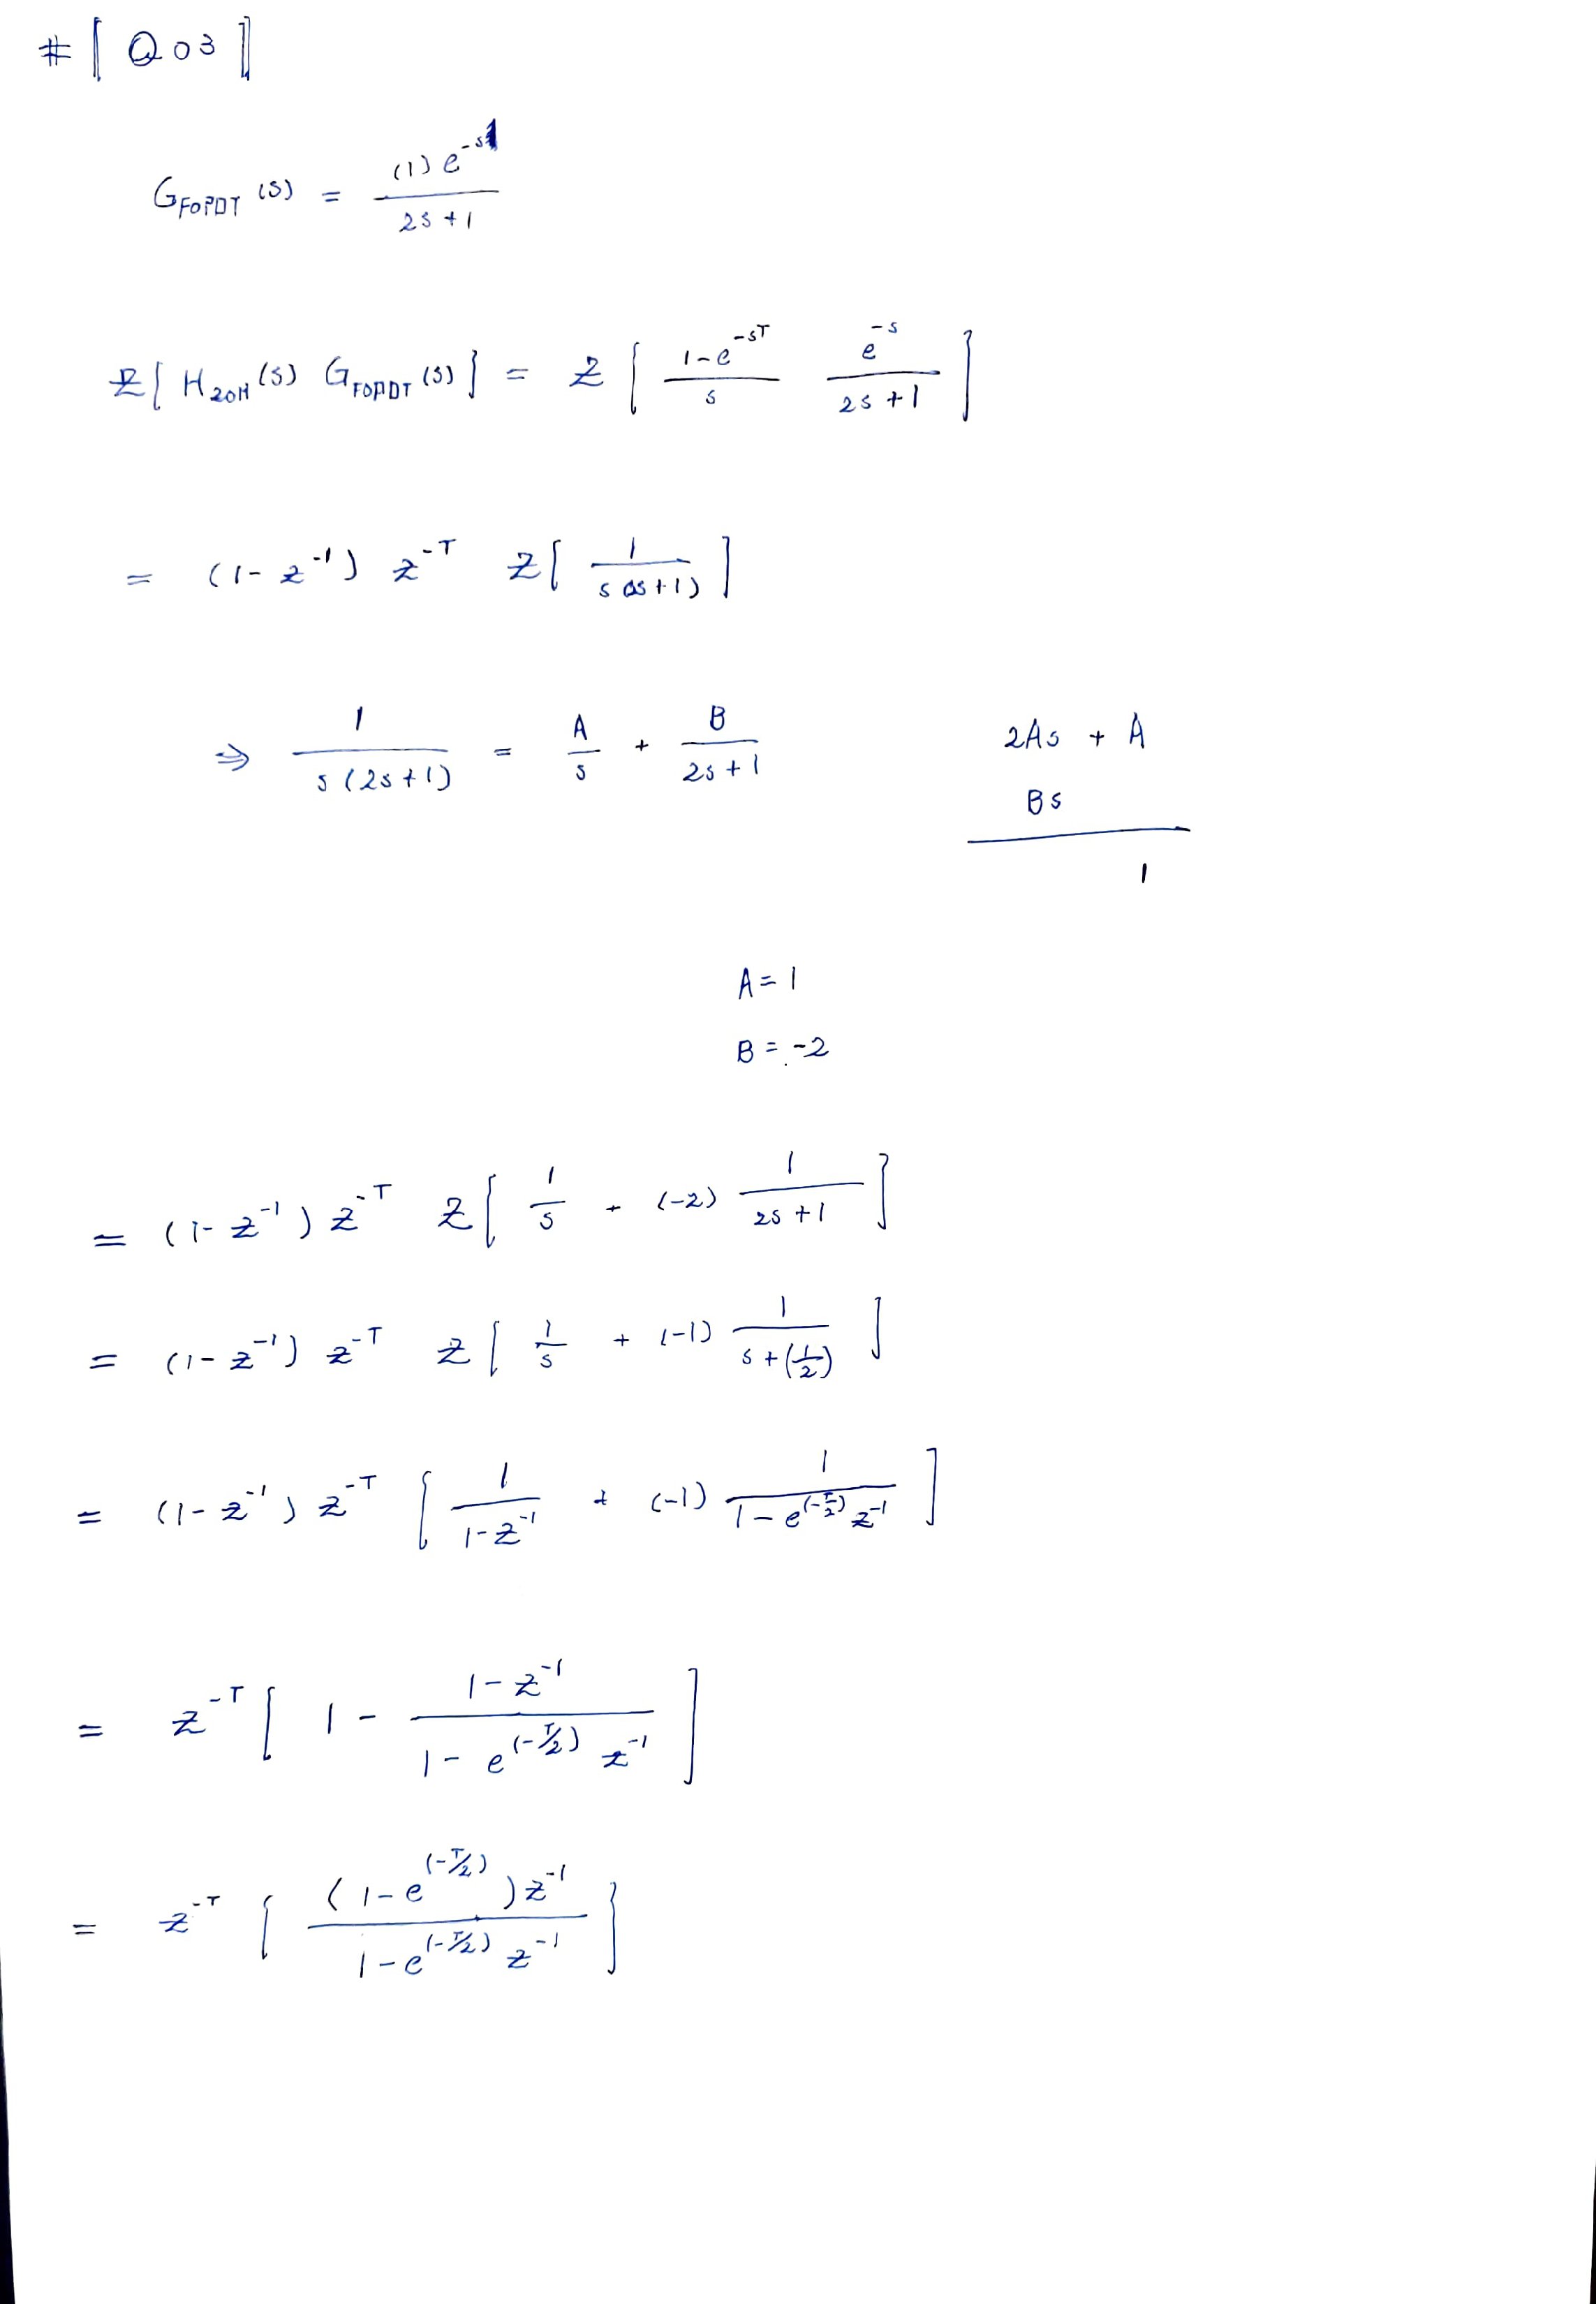 # [ Q03 ]
G_FOPDT (s) = (1) e^{-s1} / 2s+1
Z[ H_ZOH (s) G_FOPDT (s) ] = Z [ 1-e^{-sT} / s  e^{-s} / 2s+1 ]
= (1- z^{-1}) z^{-T} Z[ 1 / s(2s+1) ]
⇒ 1 / s(2s+1) = A / s + B / 2s+1
2As + A
Bs
1
A = 1
B = -2
= (1- z^{-1}) z^{-T} Z[ 1/s + (-2) 1 / 2s+1 ]
= (1- z^{-1}) z^{-T} Z[ 1/s + (-1) 1 / s+(1/2) ]
= (1- z^{-1}) z^{-T} [ 1 / 1-z^{-1} + (-1) 1 / 1-e^{(-T/2)} z^{-1} ]
= z^{-T} [ 1 - 1-z^{-1} / 1-e^{(-T/2)} z^{-1} ]
= z^{-T} [ (1-e^{(-T/2)}) z^{-1} / 1-e^{(-T/2)} z^{-1} ]